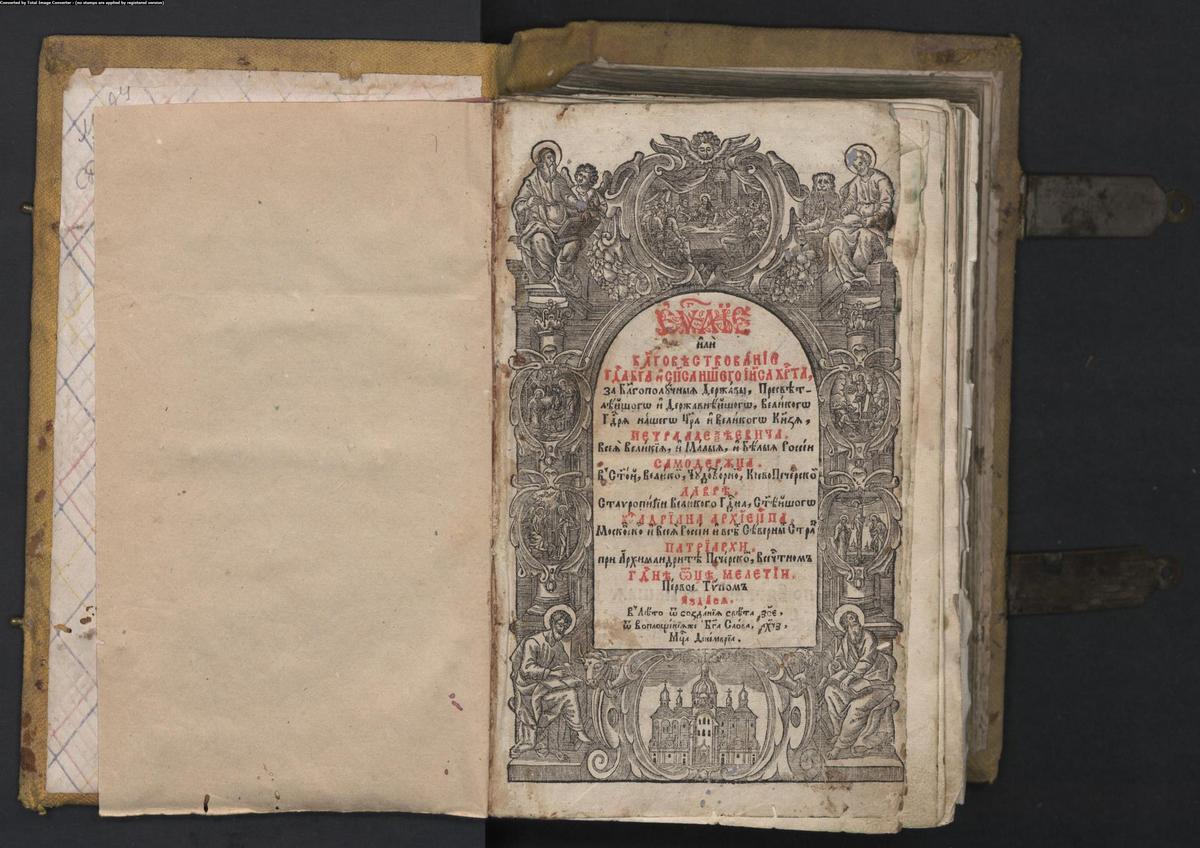 Converted by Total Image Converter - (no stamps are applied by registered version)
Єѵⷢ҇лїе
и҆лѝ
Бл҃говѣствова́нїе
Гдⷭ҇а Бг҃а и҆ Сп҃са на́шегѡ І҆и҃са Хрⷭ҇та̀,
За Бл҃гополꙋ́чныѧ Держа́вы, Пресвѣт-
лѣ́йшогѡ и҆ Держа́внѣйшогѡ, Вели́когѡ
Гдⷭ҇рѧ на́шегѡ Цр҃ѧ̀ и҆ Вели́когѡ Кн҃зѧ,
Петра Алеѯѣевича.
Всеѧ̀ Вели́кїѧ, и҆ Ма́лыѧ, и҆ Бѣ́лыѧ Росси́и
Самоде́ржца.
В Ст҃о́й, Вели́коⷨ, Чꙋдо́во́рноⷨ, Кїево Пече́рскоⷨ
Лаврѣ.
Стаѵропи́гїи Вели́кого Гдⷭ҇на, Ст҃ѣ́йшогѡ
Кѵⷬ҇ Адрїана Архїепⷭ҇па
Моско́вско и҆ Всеѧ̀ Росси́и и҆ всѣⷯ Сѣ́верныⷯ Стра́нъ
Патрїархи.
при А҆рхїмандри́тѣ Пече́рскоⷨ, Всечⷭ҇тномъ
Гдⷭ҇нѣ Ѿцѣ̀ Мелетїи.
Пе́рвое Тѵ́помъ
Издасѧ.
В Лѣ́то ѿ созда́нїѧ свѣ́та ҂зс҃е,
ѿ воплоще́нїѧже Бг҃а Сло́ва, ҂ах҃чз,
Мцⷭ҇а Деке́мврїа.